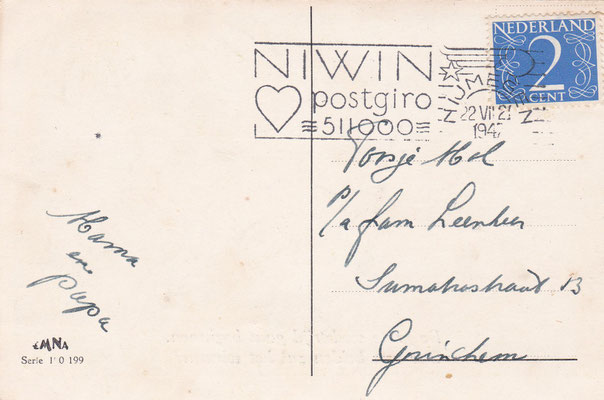 NEDERLAND
2
CENT
NIWIN
postgiro
511000
NIJMEGEN
22 VII 21
1947
Toosje Mol
p/a fam Leenheer
Sumatrastraat 13
Gorinchem
Mama
en
papa
Serie 1 0 199